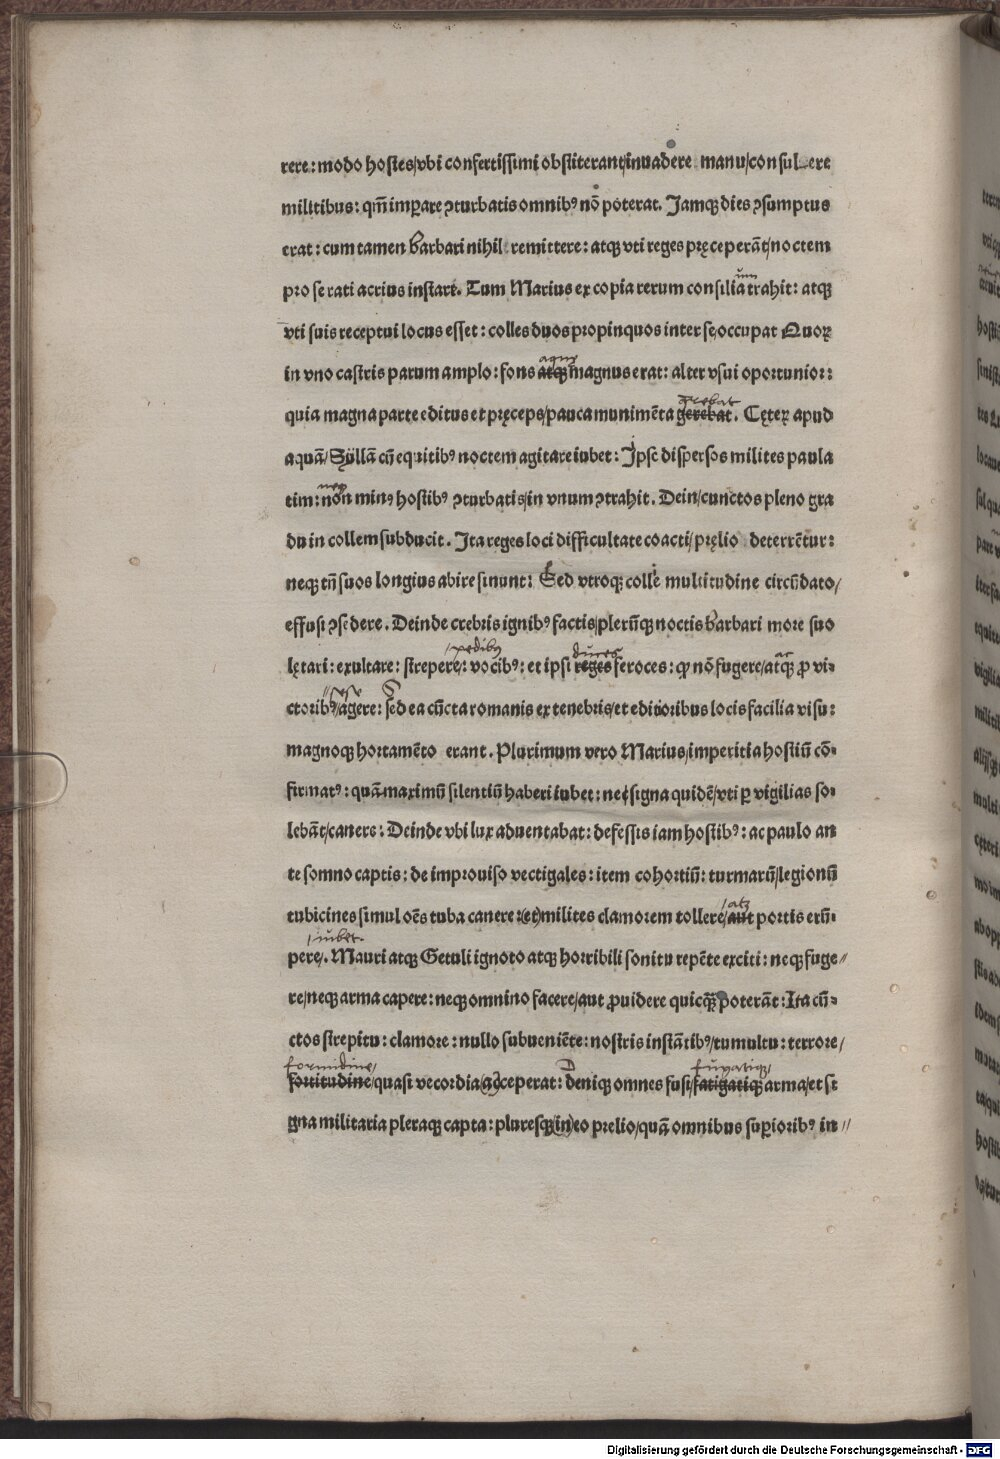 rere: modo hostes/vbi confertissimi obstiterant/inuadere manu/consulere
militibus: qm̄ imꝑare ꝯturbatis omnibꝰ nō poterat. Jamqꝫ dies ꝯsumptus
erat: cum tamen barbari nihil remittere: atqꝫ vti reges pręceperāt/noctem
pro se rati acrius instare. Tum Marius ex copia rerum consilia trahit: atqꝫ
um
vti suis receptui locus esset: colles duos propinquos inter se occupat Quoꝝ
in vno castris parum amplo: fons atqꝫ magnus erat: alter vsui oportunior:
aquę
quia magna parte editus et pręceps/pauca munimēta gerebat. Cęteꝝ apud
quębat
aquā/Syllā cū equitibꝰ noctem agitare iubet: Jpse dispersos milites paula
tim: non minꝰ hostibꝰ ꝯturbatis/in vnum ꝯtrahit. Dein/cunctos pleno gra
neqꝫ
du in collem subducit. Jta reges loci difficultate coacti/pręlio deterrētur:
neqꝫ tn̄ suos longius abire sinunt: Sed vtroqꝫ colle multitudine circūdato/
effusi ꝯsedere. Deinde crebris ignibꝰ factis/plerūqꝫ noctis barbari more suo
lętari: exultare: strepere: vocibꝰ: et ipsi reges feroces: ꝙ nō fugere/atqꝫ ꝓ vi⸗
/pedibꝰ duces ac
ctoribꝰ/agere: sed ea cūcta romanis ex tenebris/et editioribus locis facilia visu:
//sese S
magnoqꝫ hortamēto erant. Plurimum vero Marius/imperitia hostiū cō⸗
firmatꝰ: quā maximū silentiū haberi iubet: ne signa quidē/vti ꝑ vigilias so⸗
lebāt/canere: Deinde vbi lux aduentabat: defessis iam hostibꝰ: ac paulo an
te somno captis: de improuiso vectigales: item cohortiū: turmarū/legionū
tubicines simul oēs tuba canere: (et) milites clamorem tollere/aut portis erū⸗
/atqꝫ
pere/. Mauri atqꝫ Getuli ignoto atqꝫ horribili sonitu repēte exciti: neqꝫ fuge//
/iubet.
re/neqꝫ arma capere: neqꝫ omnino facere/aut ꝓuidere quicqꝫ̄ poterāt: Jta cū⸗
ctos strepitu: clamore: nullo subueniēte: nostris instātibꝰ/tumultu: terrore/
fortitudine/quasi vecordia/acceperat: denique omnes fusi/fatigatiqꝫ arma/et si
formidine/ D fugatiqꝫ/
gna militaria pleraqꝫ capta: pluresqꝫ (in) eo prelio/quā omnibus suꝑioribꝰ in//
Digitalisierung gefördert durch die Deutsche Forschungsgemeinschaft - DFG